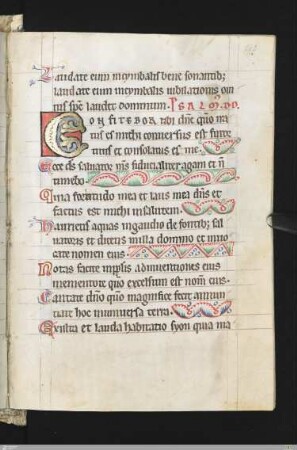 Laudate eum incymbalis bene sonantib;
laudate eum incymbalis iubilationis om
nis sp̄c laudet dominum.
Confitebor tibi dn̄e qm̄ ira
tus es michi conuersus est furor
tuus et consolatus es me.
Ecce ds̄ saluator ms̄ fiducialiter agam et n̄
timebo.
Quia fortitudo mea et laus mea dn̄s et
factus est michi insalutem.
Haurietis aquas ingaudio de fontib; sal
uatoris et dicetis inilla domino et inuo
cate nomen eius.
Notas facite inpopulis adinuentiones eius
mementote qm̄ excelsum est nom̄ eius.
Cantate dn̄o qm̄ magnifice fecit annun
tiate hoc inuniuersa terra.
Exulta et lauda habitatio syon quia ma